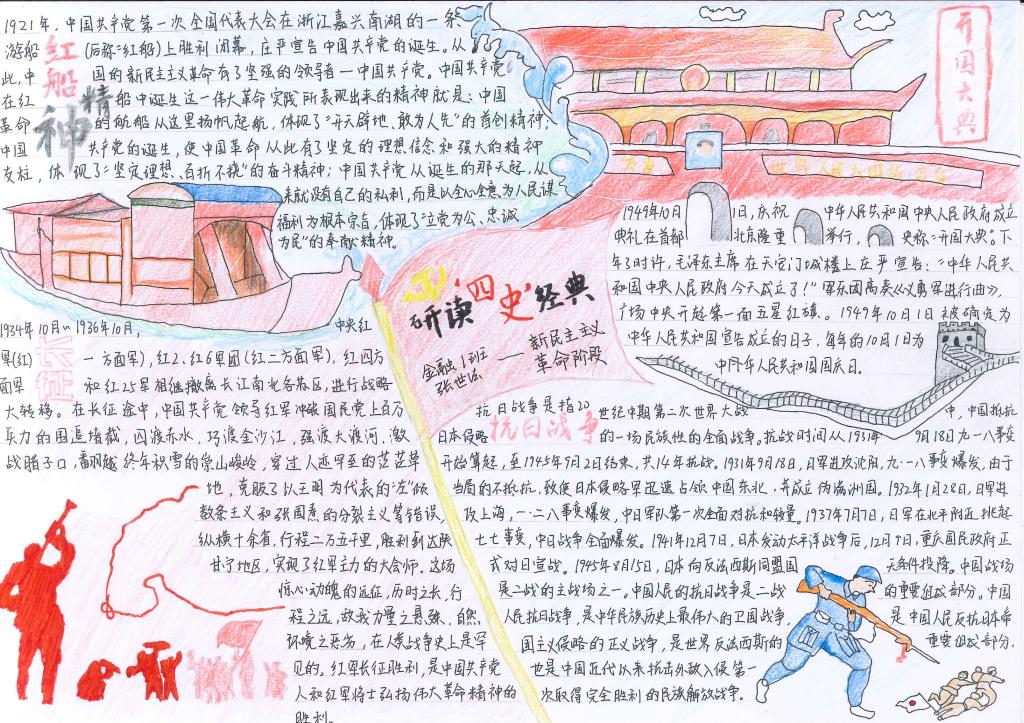 1921年，中国共产党第一次全国代表大会在浙江嘉兴南湖的一条
游船（后称"红船）上胜利闭幕，庄严宣告中国共产党的诞生。从
此，中国的新民主主义革命有了坚强的领导者一中国共产党。中国共产党
在红船中诞生这一伟大革命实践所表现出来的精神就是：中国
革命的航船从这里扬帆起航，体现了"开天辟地、敢为人先"的首创精神；
中国共产党的诞生，使中国革命从此有了坚定的理想信念和强大的精神
支柱，体现了"坚定理想、百折不挠"的奋斗精神；中国共产党从诞生的那天起，从
来就没有自己的私利，而是以全心全意为人民谋
福利为根本宗旨，体现了"立党为公、忠诚
为民"的奉献精神。
红船
精神
开国大典
万岁
世界人民大团结万岁
1949年10月1日，庆祝中华人民共和国中央人民政府成立
典礼在首都北京隆重举行，史称"开国大典。下
午3时许，毛泽东主席在天安门城楼上庄严宣告："中华人民共
和国中央人民政府今天成立了！"军乐团高奏《义勇军进行曲》，
广场中央升起第一面五星红旗。1949年10月1日被确定为
中华人民共和国宣告成立的日子，每年的10月1日为
中华人民共和国国庆日。
研读'四史'经典
——新民主主义
革命阶段
金融1班
长征
1934年10月~1936年10月，中央红
军(红一方面军)，红2、红6军团(红二方面军)，红四方
面军和红25军相继撤离长江南北各苏区，进行战略
大转移。在长征途中，中国共产党领导红军冲破国民党上百万
兵力的围追堵截，四渡赤水，巧渡金沙江，强渡大渡河，激
战腊子口，翻越终年积雪的崇山峻岭，穿过人迹罕至的茫茫草
地，克服了以王明为代表的"左"倾
教条主义和张国焘的分裂主义等错误，
纵横十余省，行程二万五千里，胜利到达陕
甘宁地区，实现了红军主力的大会师。这场
惊心动魄的远征，历时之长，行
程之远，敌我力量之悬殊，自然
环境之恶劣，在人类战争史上是罕
见的。红军长征胜利，是中国共产党
人和红军将士弘扬伟大革命精神的
胜利。
抗日战争
抗日战争是指20世纪中期第二次世界大战中，中国抵抗
日本侵略的一场民族性的全面战争。抗战时间从1931年9月18日九一八事变
开始算起，至1945年9月2日结束，共14年抗战。1931年9月18日，日军进攻沈阳，九·一八事变爆发，由于
当局的不抵抗，致使日本侵略军迅速占领中国东北，并成立伪满洲国。1932年1月28日，日军进
攻上海，一·二八事变爆发，中日军队第一次全面对抗和较量。1937年7月7日，日军在北平附近挑起
七七事变，中日战争全面爆发。1941年12月7日，日本发动太平洋战争后，12月9日，重庆国民政府正
式对日宣战。1945年8月15日，日本向反法西斯同盟国无条件投降。中国战场
是二战的主战场之一。中国人民的抗日战争是二战的重要组成部分。中国
人民抗日战争，是中华民族历史上最伟大的卫国战争，是中国人民反抗日本帝
国主义侵略的正义战争，是世界反法西斯的重要组成部分，
也是中国近代以来抗击外敌入侵第一
次取得完全胜利的民族解放战争。